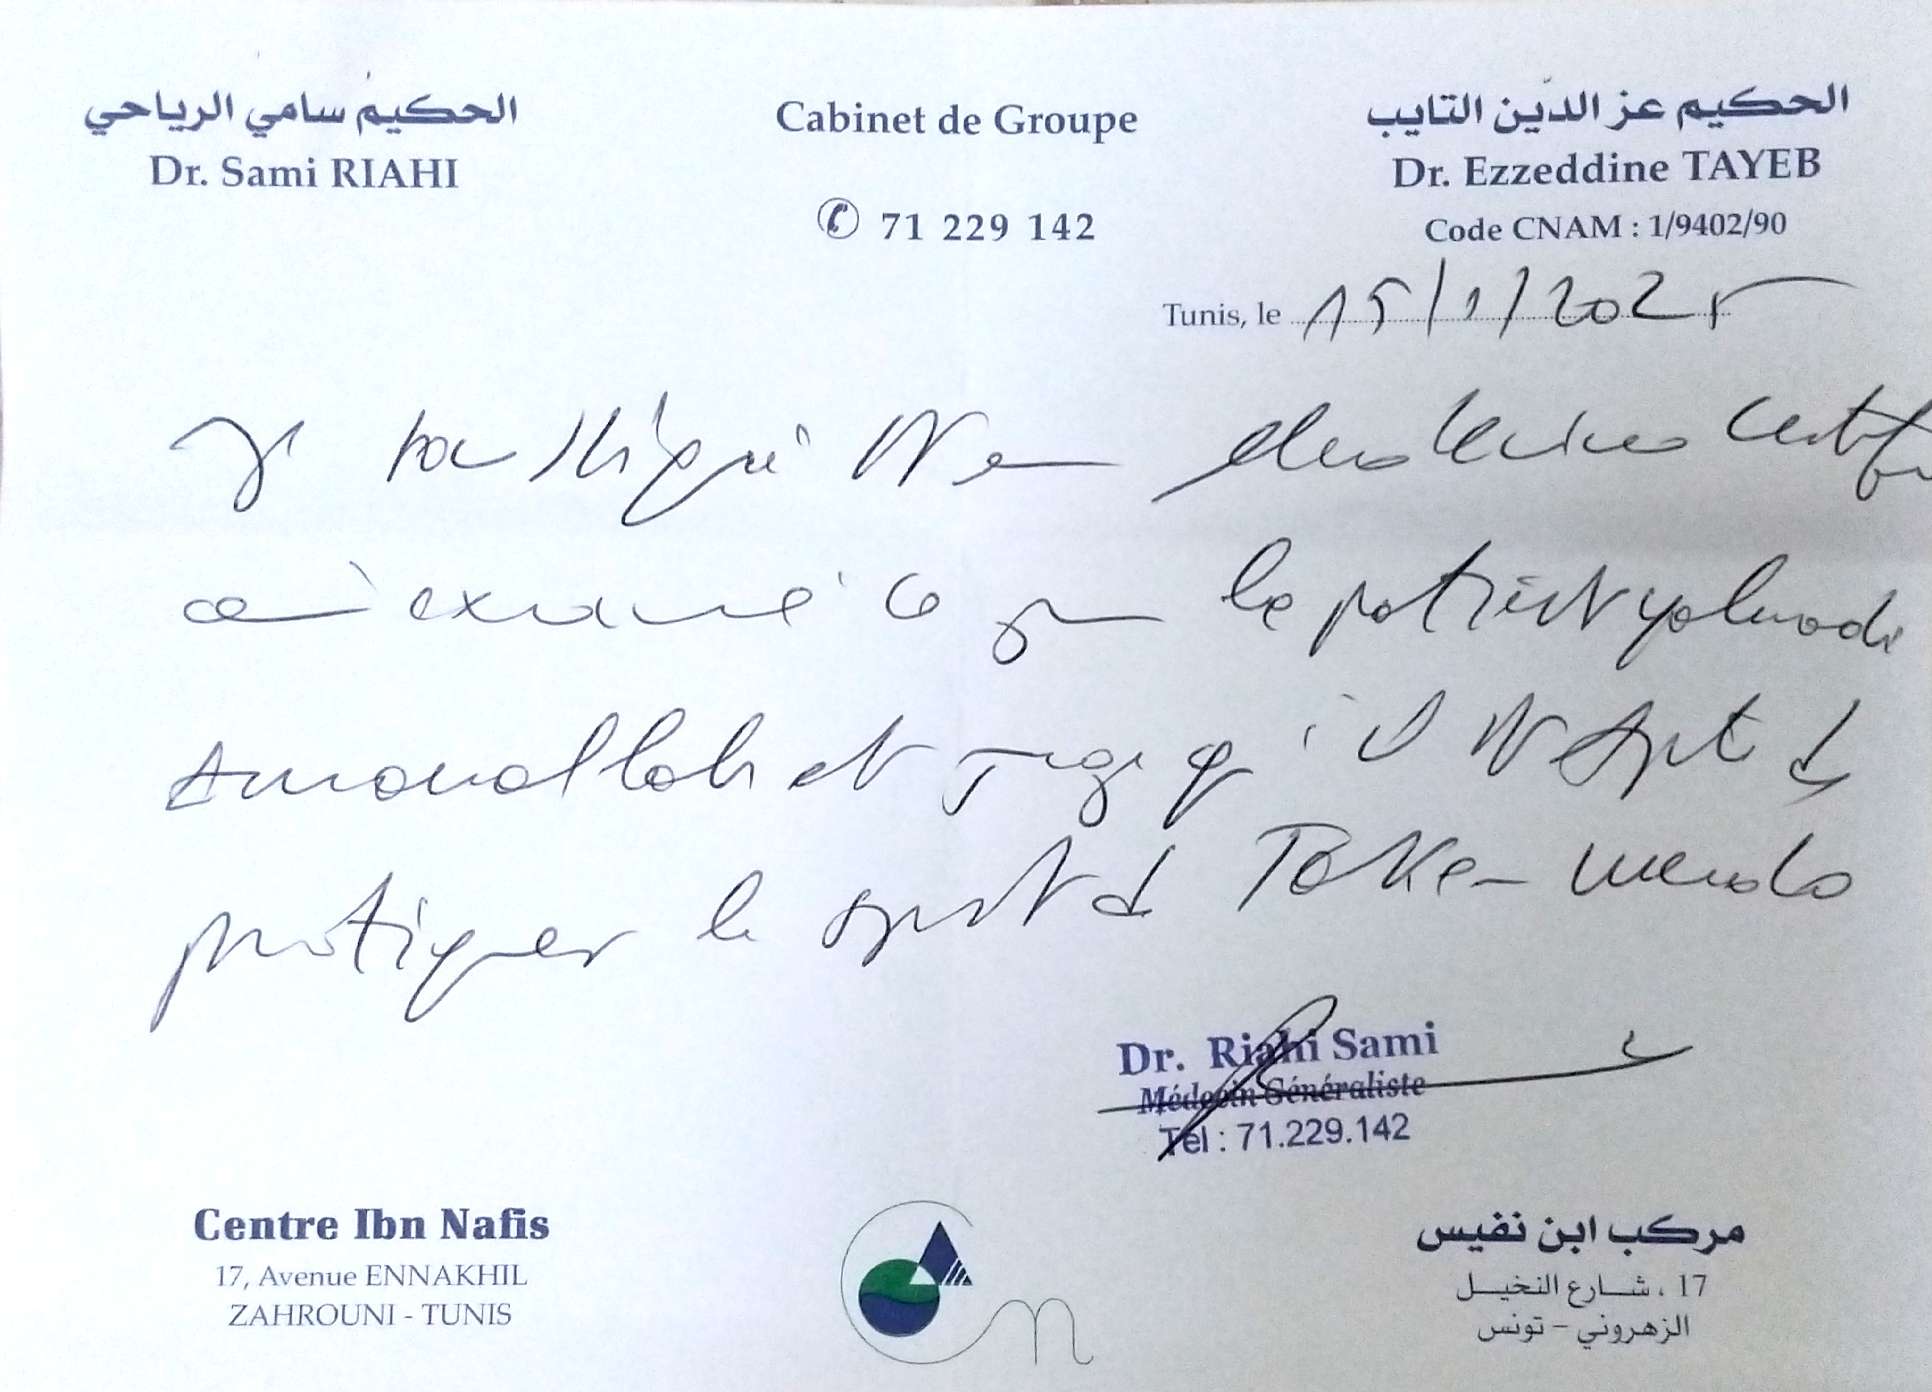 الحكيم سامي الرياحي
Dr. Sami RIAHI
Cabinet de Groupe
✆ 71 229 142
الحكيم عز الدّين التايب
Dr. Ezzeddine TAYEB
Code CNAM : 1/9402/90
Tunis, le 15/1/2025
Je soussigné en médecine certifie
avoir examiné ce jour le patient
et juge qu'il est apte à
pratiquer le sport de
Dr. Riahi Sami
Médecin Généraliste
Tél : 71.229.142
Centre Ibn Nafis
17, Avenue ENNAKHIL
ZAHROUNI - TUNIS
مركب ابن نفيس
17 ، شارع النخيل
الزهروني - تونس